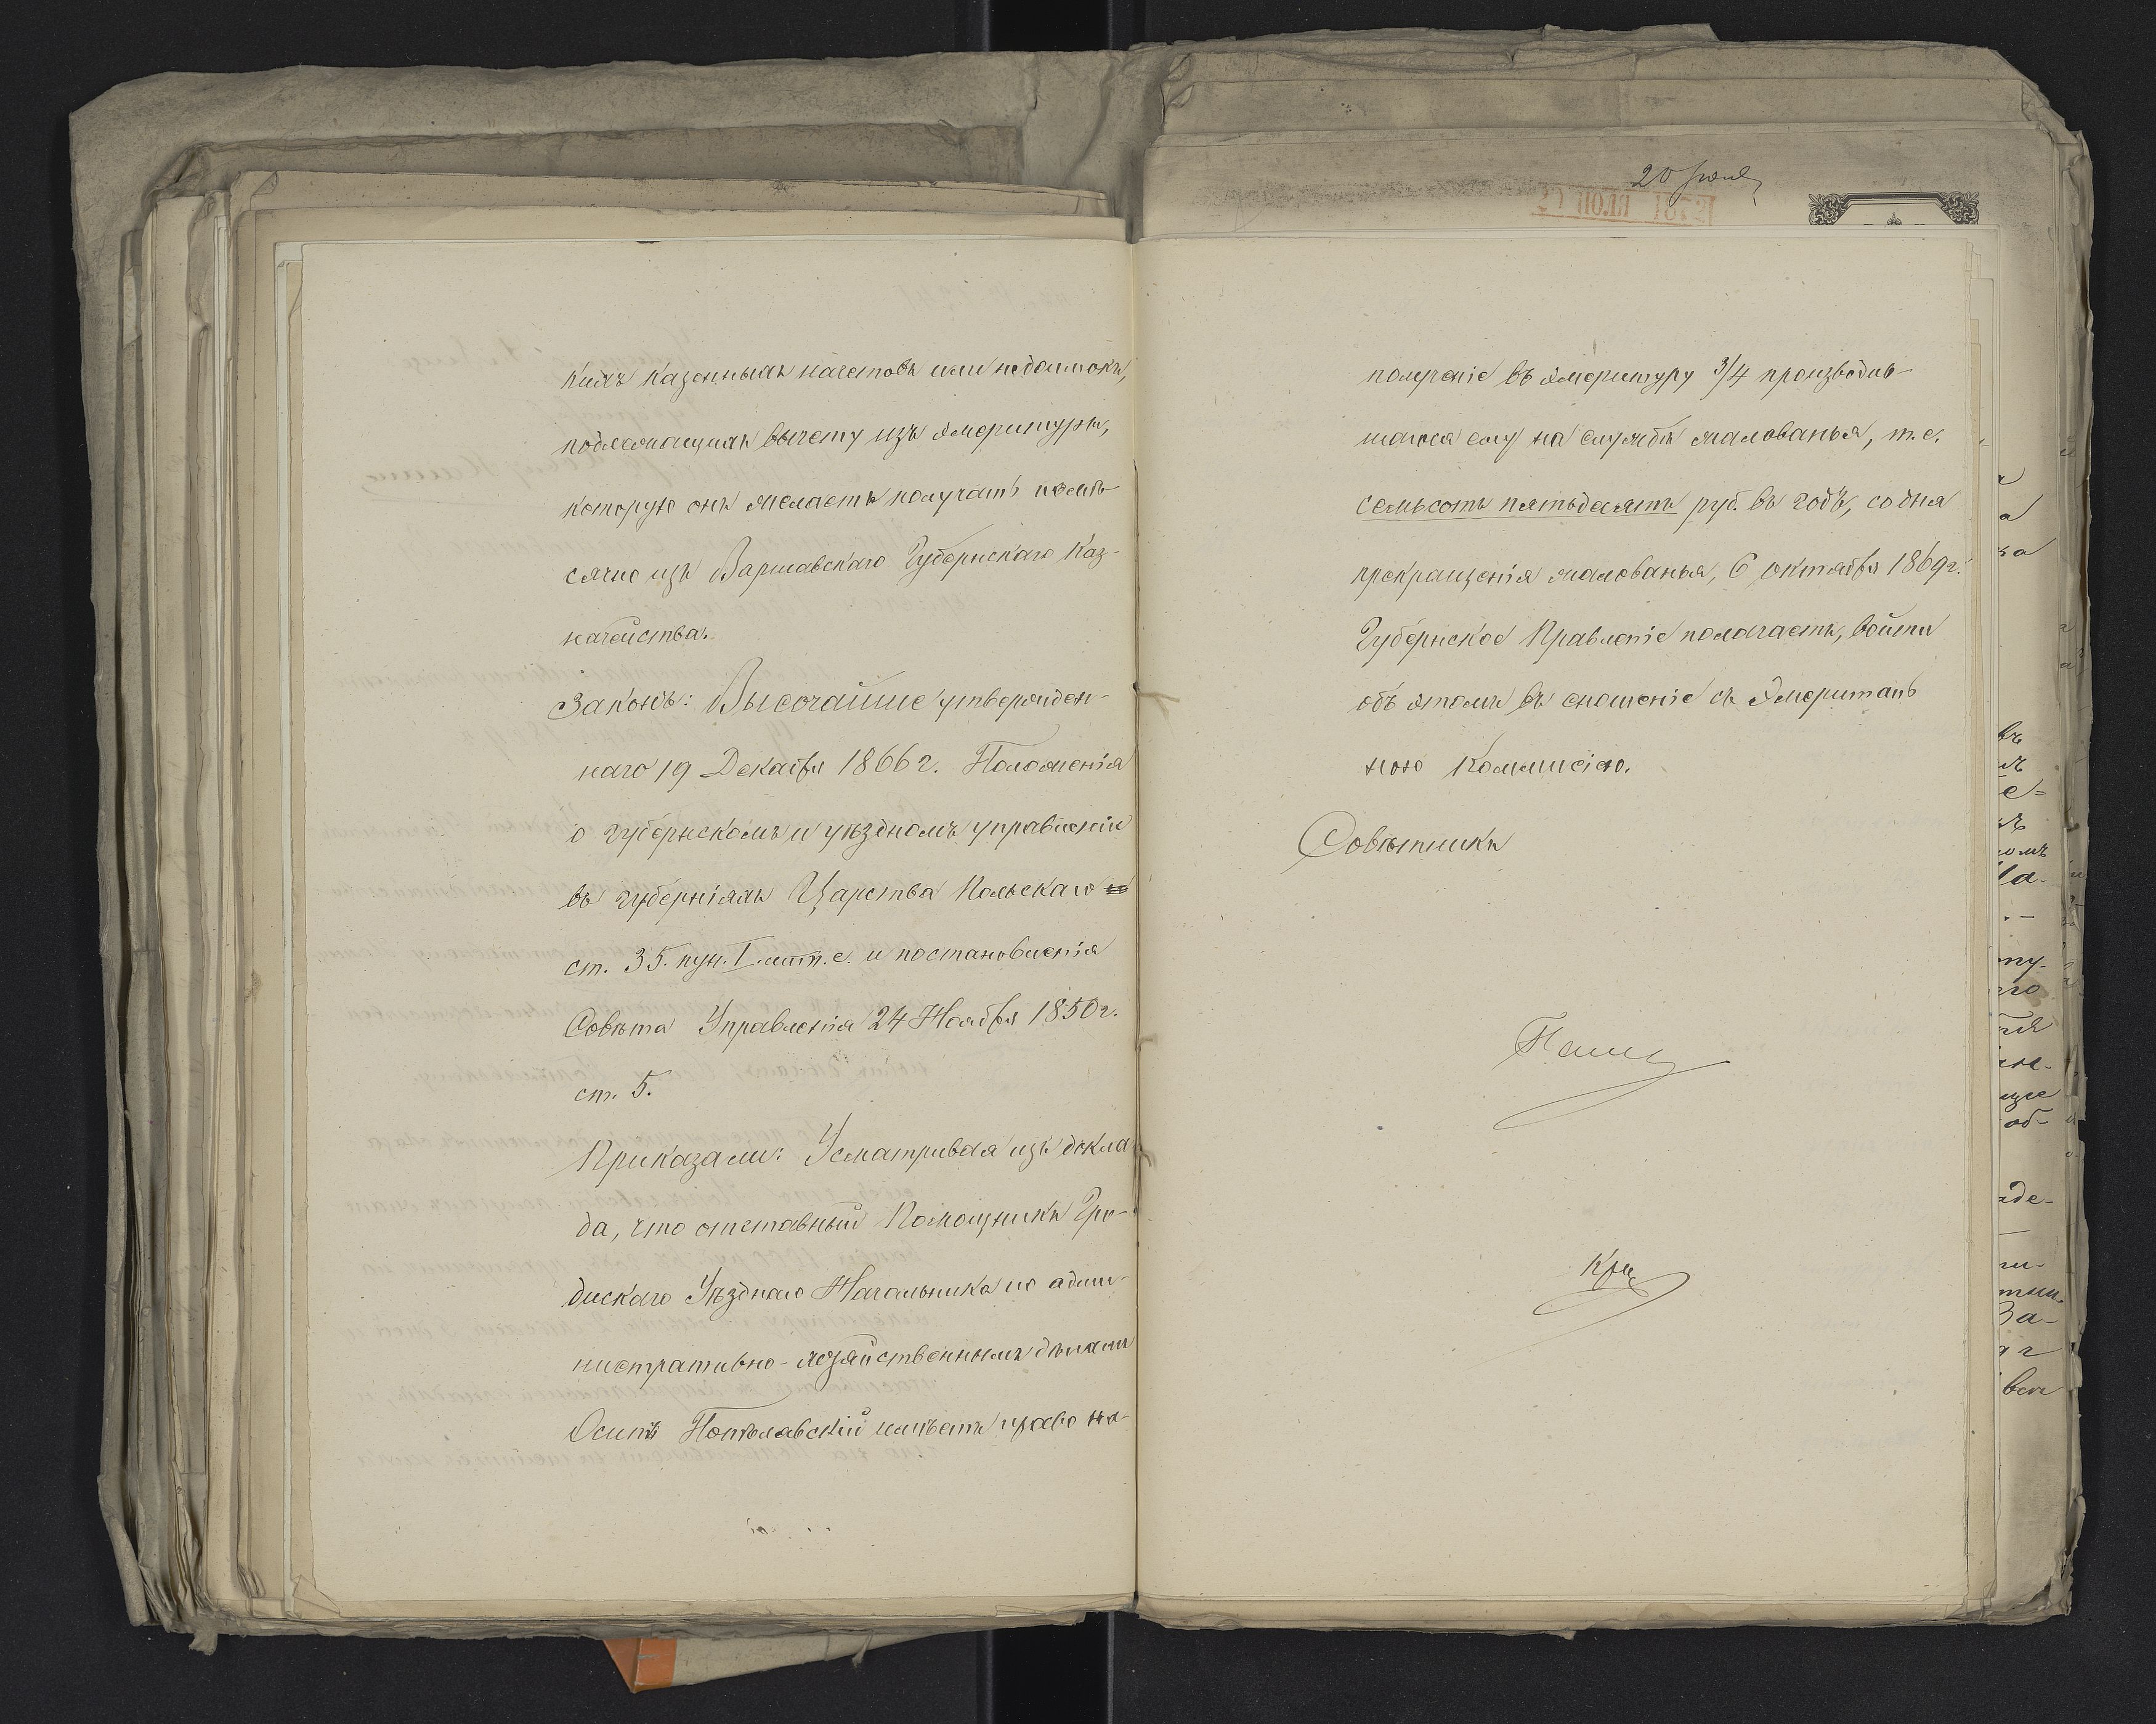 кихъ казенныхъ начетовъ или недоимокъ,
подлежащихъ вычету изъ эмеритуры,
которую онъ желаетъ получать помѣ-
сячно изъ Варшавскаго Губернскаго Каз-
начейства.
Законъ: Высочайше утвержден-
наго 19 Декабря 1866 г. Положенія
о губернскомъ и уѣздномъ управленіи
въ губерніяхъ Царства Польскаго
ст. 35. пун. I. литт. е. и постановленія
Совѣта Управленія 24 Ноября 1850 г.
ст. 5.
Приказали: Усматривая изъ докла
да, что отставный Помощникъ Гро-
дискаго Уѣзднаго Начальника по адми-
нистративно-хозяйственнымъ дѣламъ
Осипъ имѣетъ право на
20
полученіе въ эмеритуру 3/4 производив-
шагося ему на службѣ жалованья, т. е.
семьсотъ пятьдесятъ руб. въ годъ, со дня
прекращенія жалованья, 6 октября 1869 г.
Губернское Правленіе полагаетъ, войти
объ этомъ въ сношеніе съ Эмериталь
ною Коммисіею.
Совѣтникъ